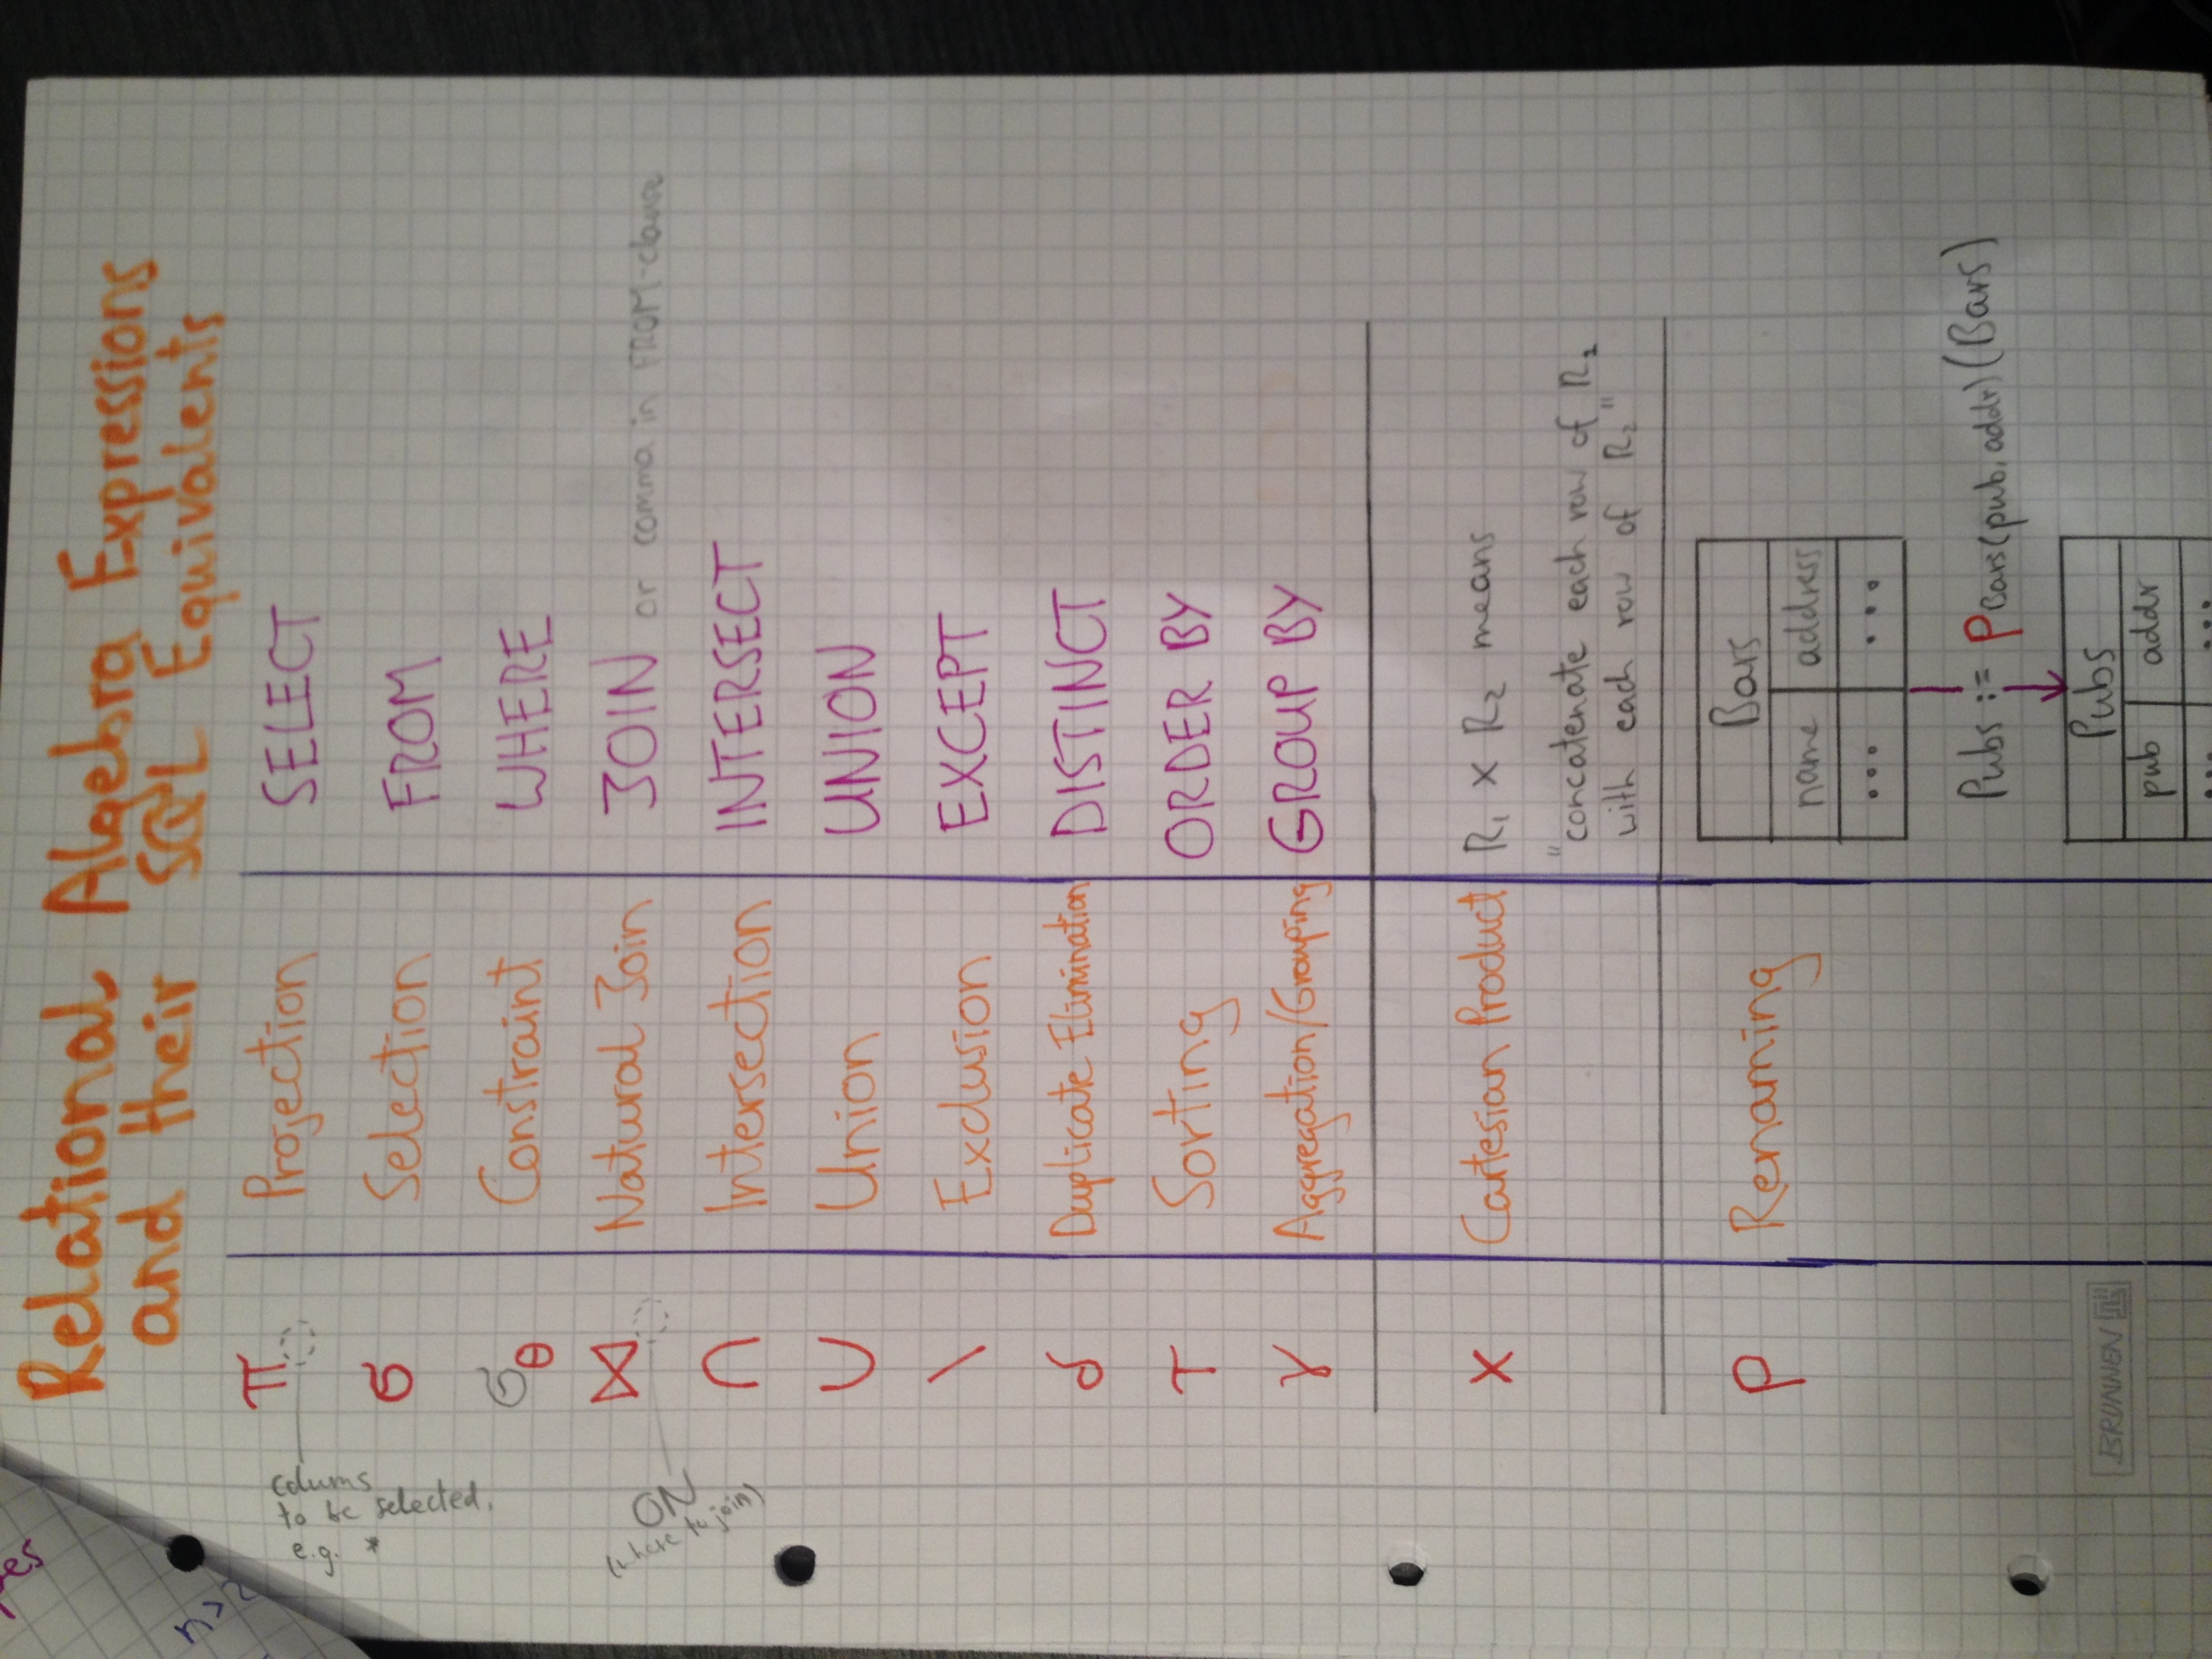 Relational Algebra Expressions
and their SQL Equivalents
π Projection SELECT
colums
to be selected.
e.g. *
σ Selection FROM
σθ Constraint WHERE
⋈ Natural Join JOIN or comma in FROM-clause
ON
(where to join)
∩ Intersection INTERSECT
∪ Union UNION
\ Exclusion EXCEPT
δ Duplicate Elimination DISTINCT
τ Sorting ORDER BY
γ Aggregation/Grouping GROUP BY
× Cartesian Product R₁ × R₂ means
"concatenate each row of R₁
with each row of R₂"
ρ Renaming
Bars
name address
... ...
Pubs := ρBars(pub, addr)(Bars)
Pubs
pub addr
... ...
BRUNNEN